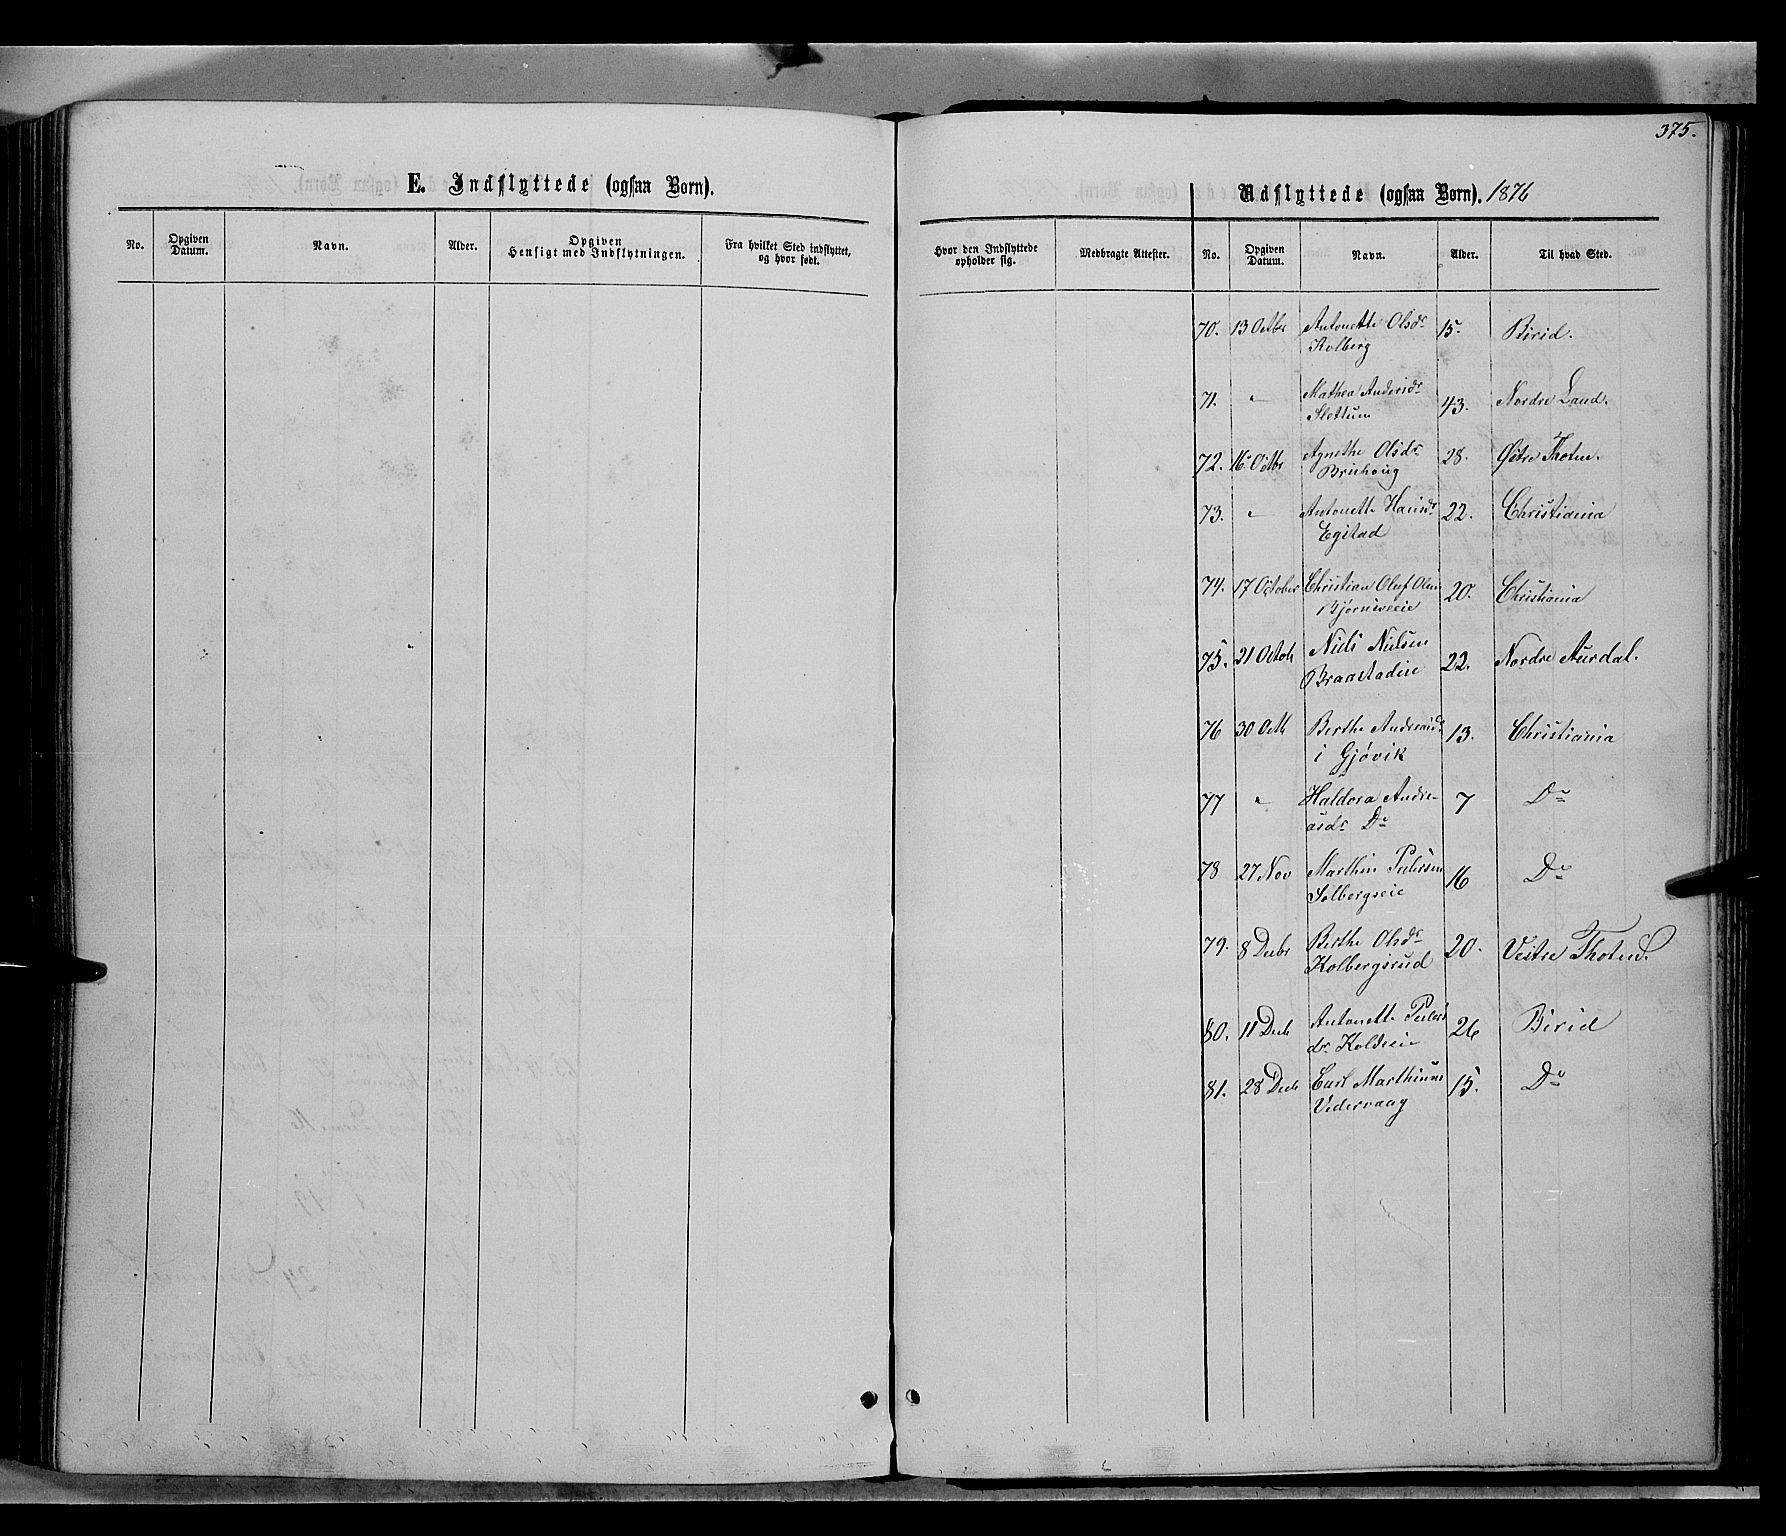 375.
E. Indflyttede (ogsaa Børn).
No. Opgiven Datum. Navn. Alder. Opgiven Hensigt med Indflytningen. Fra hvilket Sted indflyttet, og hvor født.
Udflyttede (ogsaa Børn). 1876
Hvor den Indflyttede opholder sig. Medbragte Attester. No. Opgiven Datum. Navn. Alder. Til hvad Sted.
70. 13 Octbr Antonette Olsdr 15. Birid.
Kolberg
71. " Mathea Andersdr 43. Nordre Land.
Slettum
72. 16 Octbr Agnethe Olsdr 28. Østre Thoten.
73. " Antonette Hansdr 22. Christiania
Egstad
74. 17 October Christian Oluf Olsen 20. Christiania
Bjørnsveie
75. 21 Octob Niels Nielsen 22. Nordre Aurdal.
Braastadeie
76 30 Octb Berthe Andreasdr 13. Christiania
i Gjøvik
77 " Haldora Andre- 7 Do
asdr Do
78 27 Nov Marthin Pedersen 16 Do
Solbergseie
79. 8 Decbr Berthe Olsdr 20. Vestre Thoten.
Kolbergsrud
80. 11 Decb Antonette Peders 26 Birid
dr
81. 28 Decb Carl Marthinus 15. Do
Vedervaag